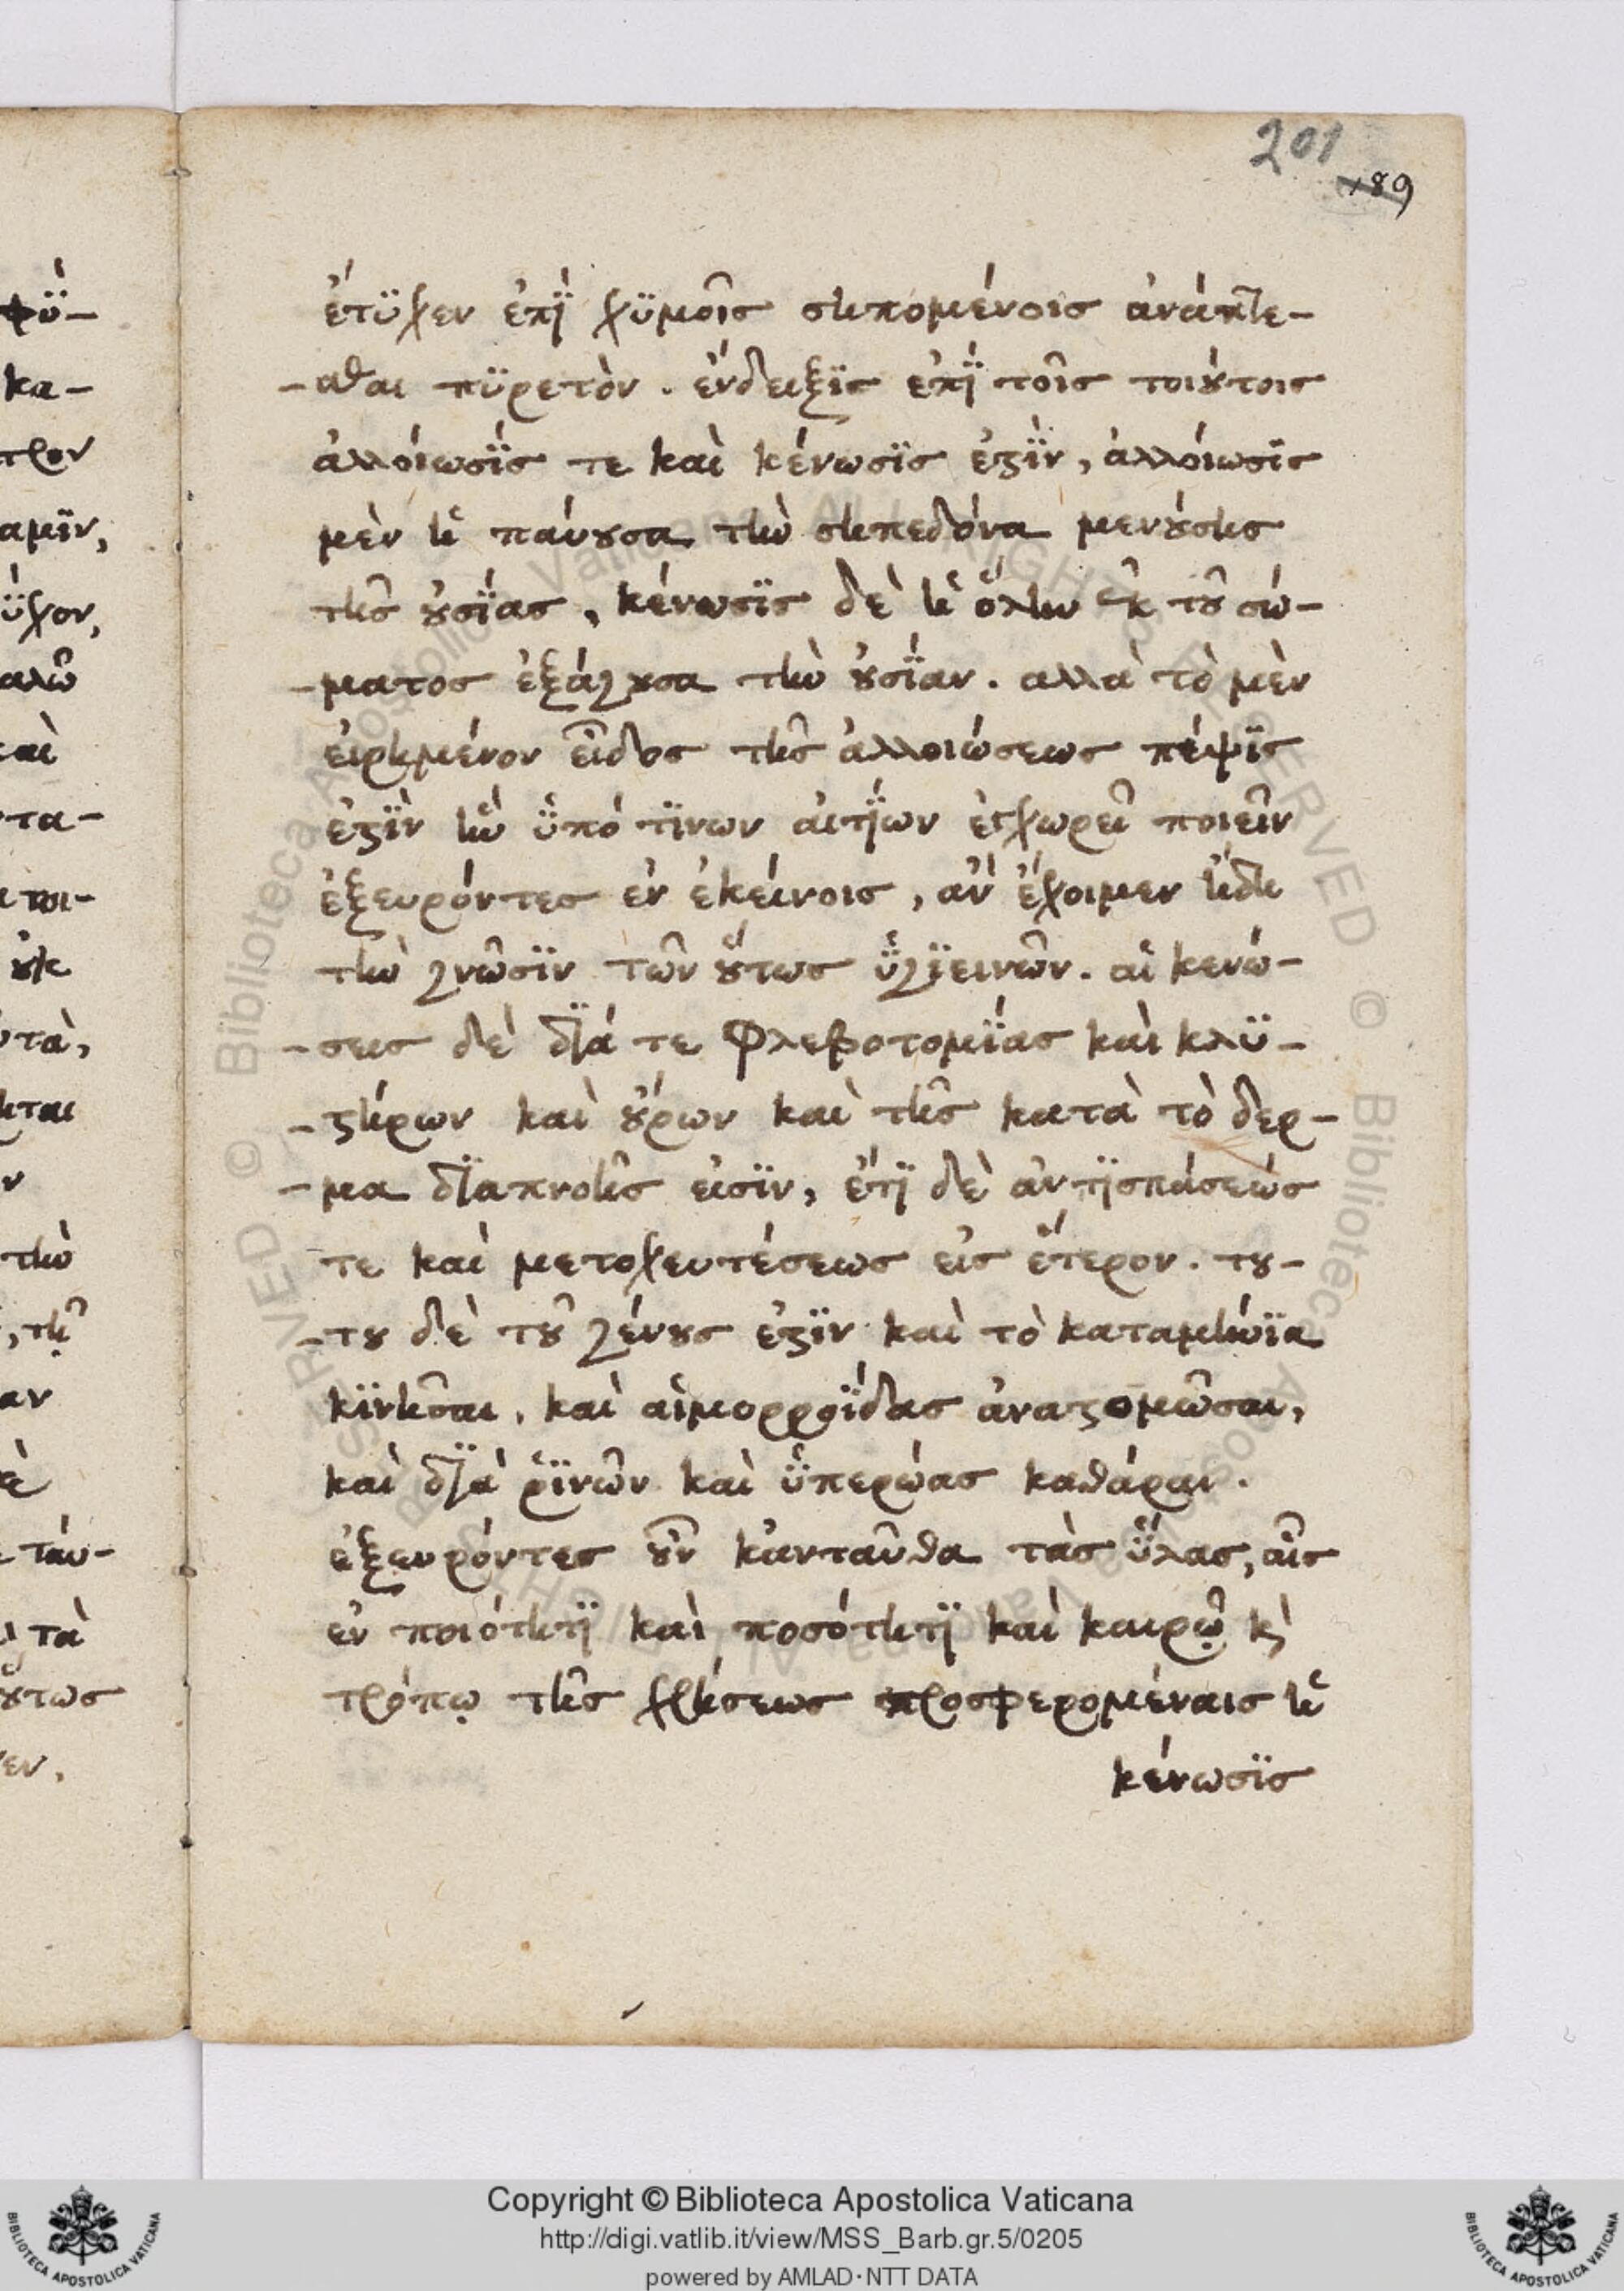 201
189
ἔτϋχεν ἐπῒ χϋμοῖς σηπομένοις ἀνάπτε-
-σθαι πϋρετὸν. ἔνδειξϊς ἐπῒ τοῖς τοιούτοις
ἀλλόιωσΐς τε καὶ κένωσϊς ἐστῒν, ἀλλόιωσϊς
μὲν ἡ παύουσα τὴν σηπεδόνα μενούσης
τῆς οὐσΐας, κένωσϊς δὲ ἡ ὅλην ἐκ τοῦ σώ-
-ματος ἐξάγουσα τὴν οὐσΐαν. αλλὰ τὸ μὲν
ἐιρημένον εἶδος τῆς ἀλλοιώσεως πέψϊς
ἐστῒν ἣν ϋπό τϊνων αἰτΐων ἐγχωρεῖ ποιεῖν
ἐξευρόντες ἐν ἐκείνοις, ἂν ἔχοιμεν ἤδη
τὴν γνῶσϊν τῶν οὕτως ϋγϊεινῶν. αἱ κενώ-
-σεις δὲ δϊά τε φλεβοτομΐας καὶ κλϋ-
-στήρων καὶ οὔρων καὶ τῆς κατὰ τὸ δερ-
-μα δϊαπνοῆς εἰσϊν, ἔτϊ δὲ ἀντϊσπάσεώς
τε καὶ μετοχευτέσεως εἰς ἕτερον. του-
-του δὲ τοῦ γένους ἐστῒν καὶ τὸ καταμήνϊα
κϊνῆσαι, καὶ αἱμορροΐδας ἀναστομῶσαι,
καὶ δϊὰ ῥϊνῶν καὶ ϋπερώας καθάραι.
ἐξευρόντες οὖν κἀνταῦθα τὰς ὕλας, αἷς
ἐν ποιότητϊ καὶ ποσότητϊ καὶ καιρῷ κὶ
τρόπῳ τῆς χρήσεως προσφερομέναις ἡ
κένωσϊς
Copyright © Biblioteca Apostolica Vaticana
http://digi.vatlib.it/view/MSS_Barb.gr.5/0205
powered by AMLAD·NTT DATA